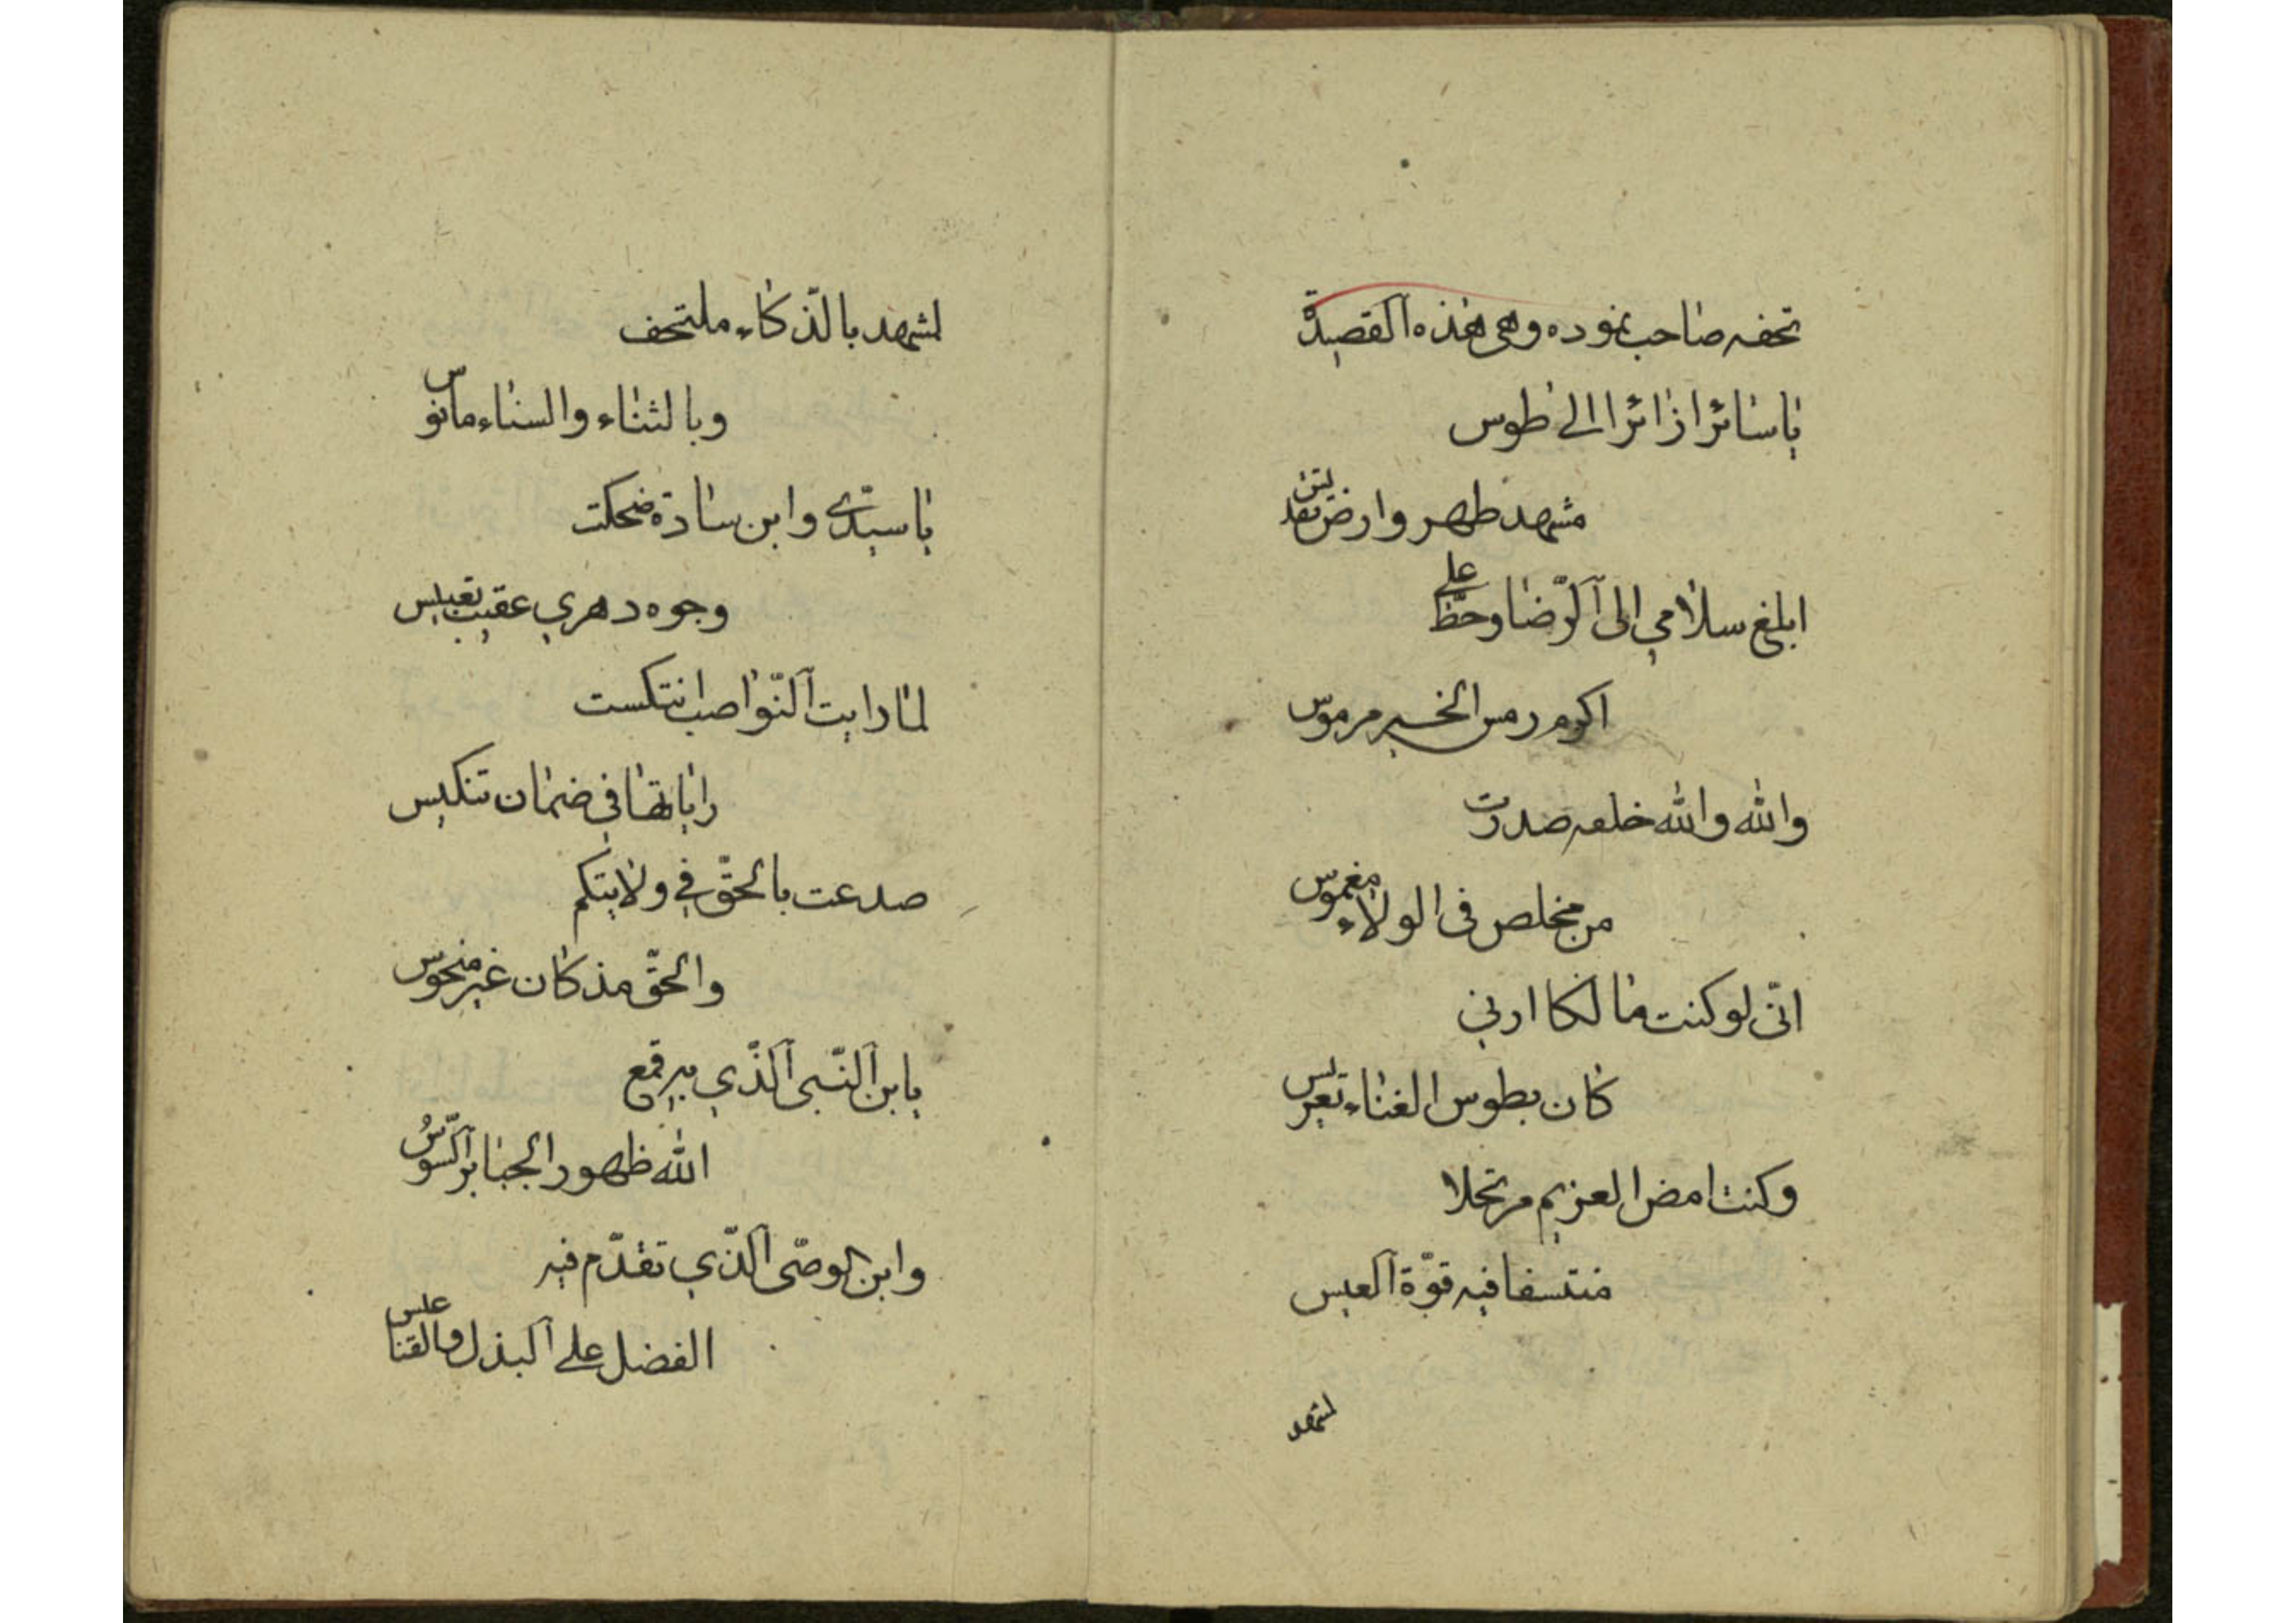 تحفه صاحب نموده وهی هذه القصیدة
یا سائرا زائرا الی طوس
مشهد طهر وارض تقدیس
ابلغ سلامی الی الرّضا وحطّ علی
اکرم رمس الخیر مرموس
والله والله حلفه صدرت
من مخلص فی الولاء مغموس
انّی لو کنت مالکا اربی
کان بطوس الغناء تعریس
وکنت امض العزیم مرتحلا
منتسفا فیه قوّة العیس
لمشهد
لمشهد بالذّکاء ملتحف
وبالثناء والسناء مانوس
یا سیّدی وابن سادة ضحکت
وجوه دهري عقیب تعبیس
لمّا رایت النّواصب انتکست
رایاتها في ضمان تنکیس
صدعت بالحقّ في ولایتکم
والحقّ مذ کان غیر منحوس
یابن النّبی الّذي به قمع
الله ظهور الجبابر السّوس
وابن الوصّی الّذي تقدّم فیه
الفضل علی البذل والقنا عیس